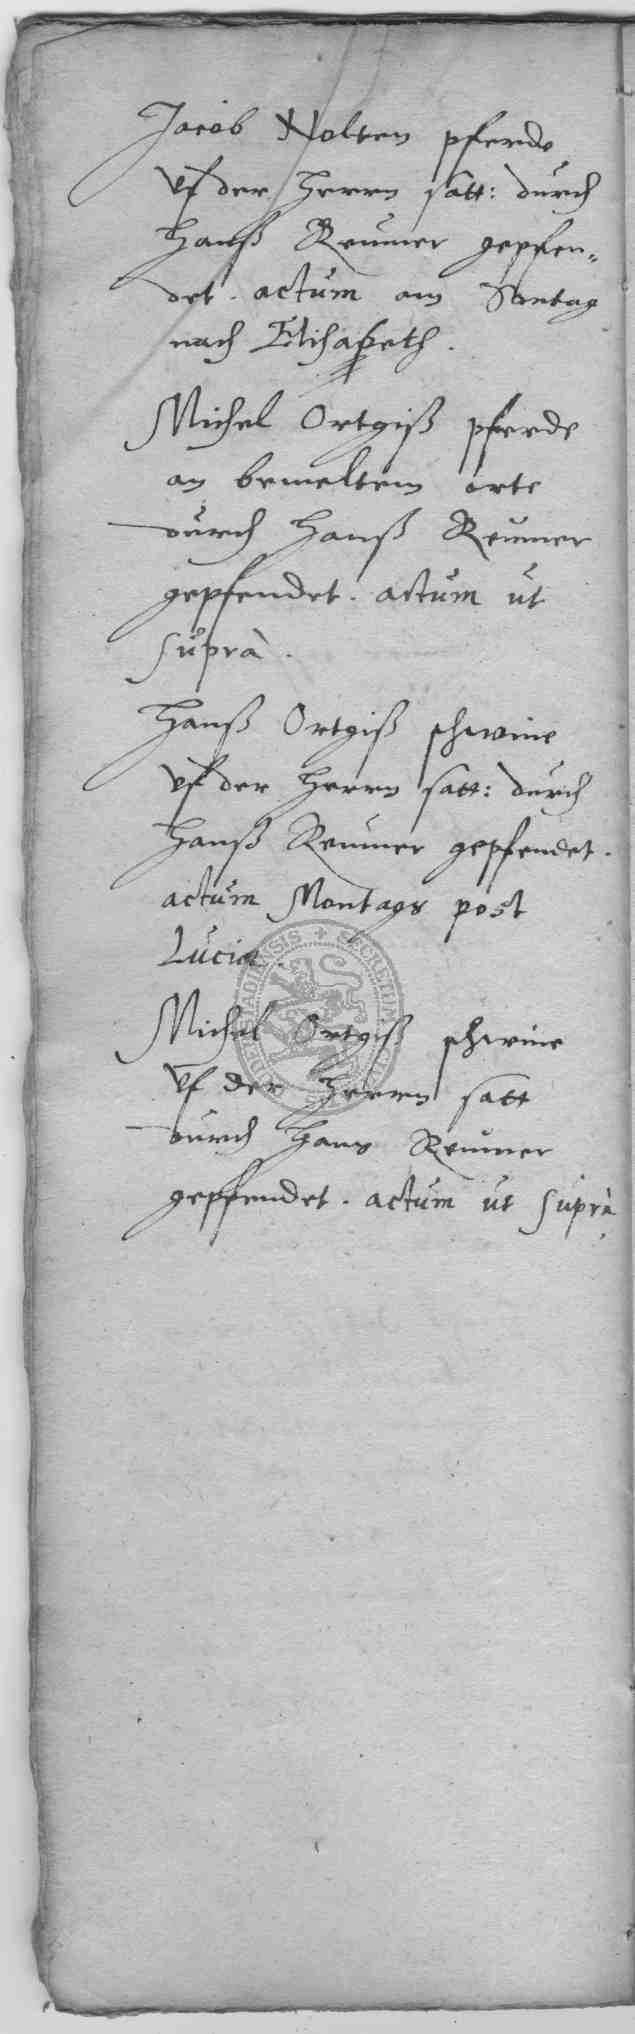 Jacob Nolten pferde
uf der Herrn satt: durch
Hanß Reumer gepfen„
det. actum am Sontag
nach Elisabeth.
Michel Ortgiß pferde
an bemeltem orte
durch Hanß Reumer
gepfendet. actum ut
suprà.
Hanß Ortgiß schwine
uf der Herrn satt: durch
Hanß Reumer gepfendet.
actum Montags post
Luciæ.
Michel Ortgiß schwine
uf der Herrn satt
durch Hans Reumer
gepfendet. actum ut suprà
SECRETUM